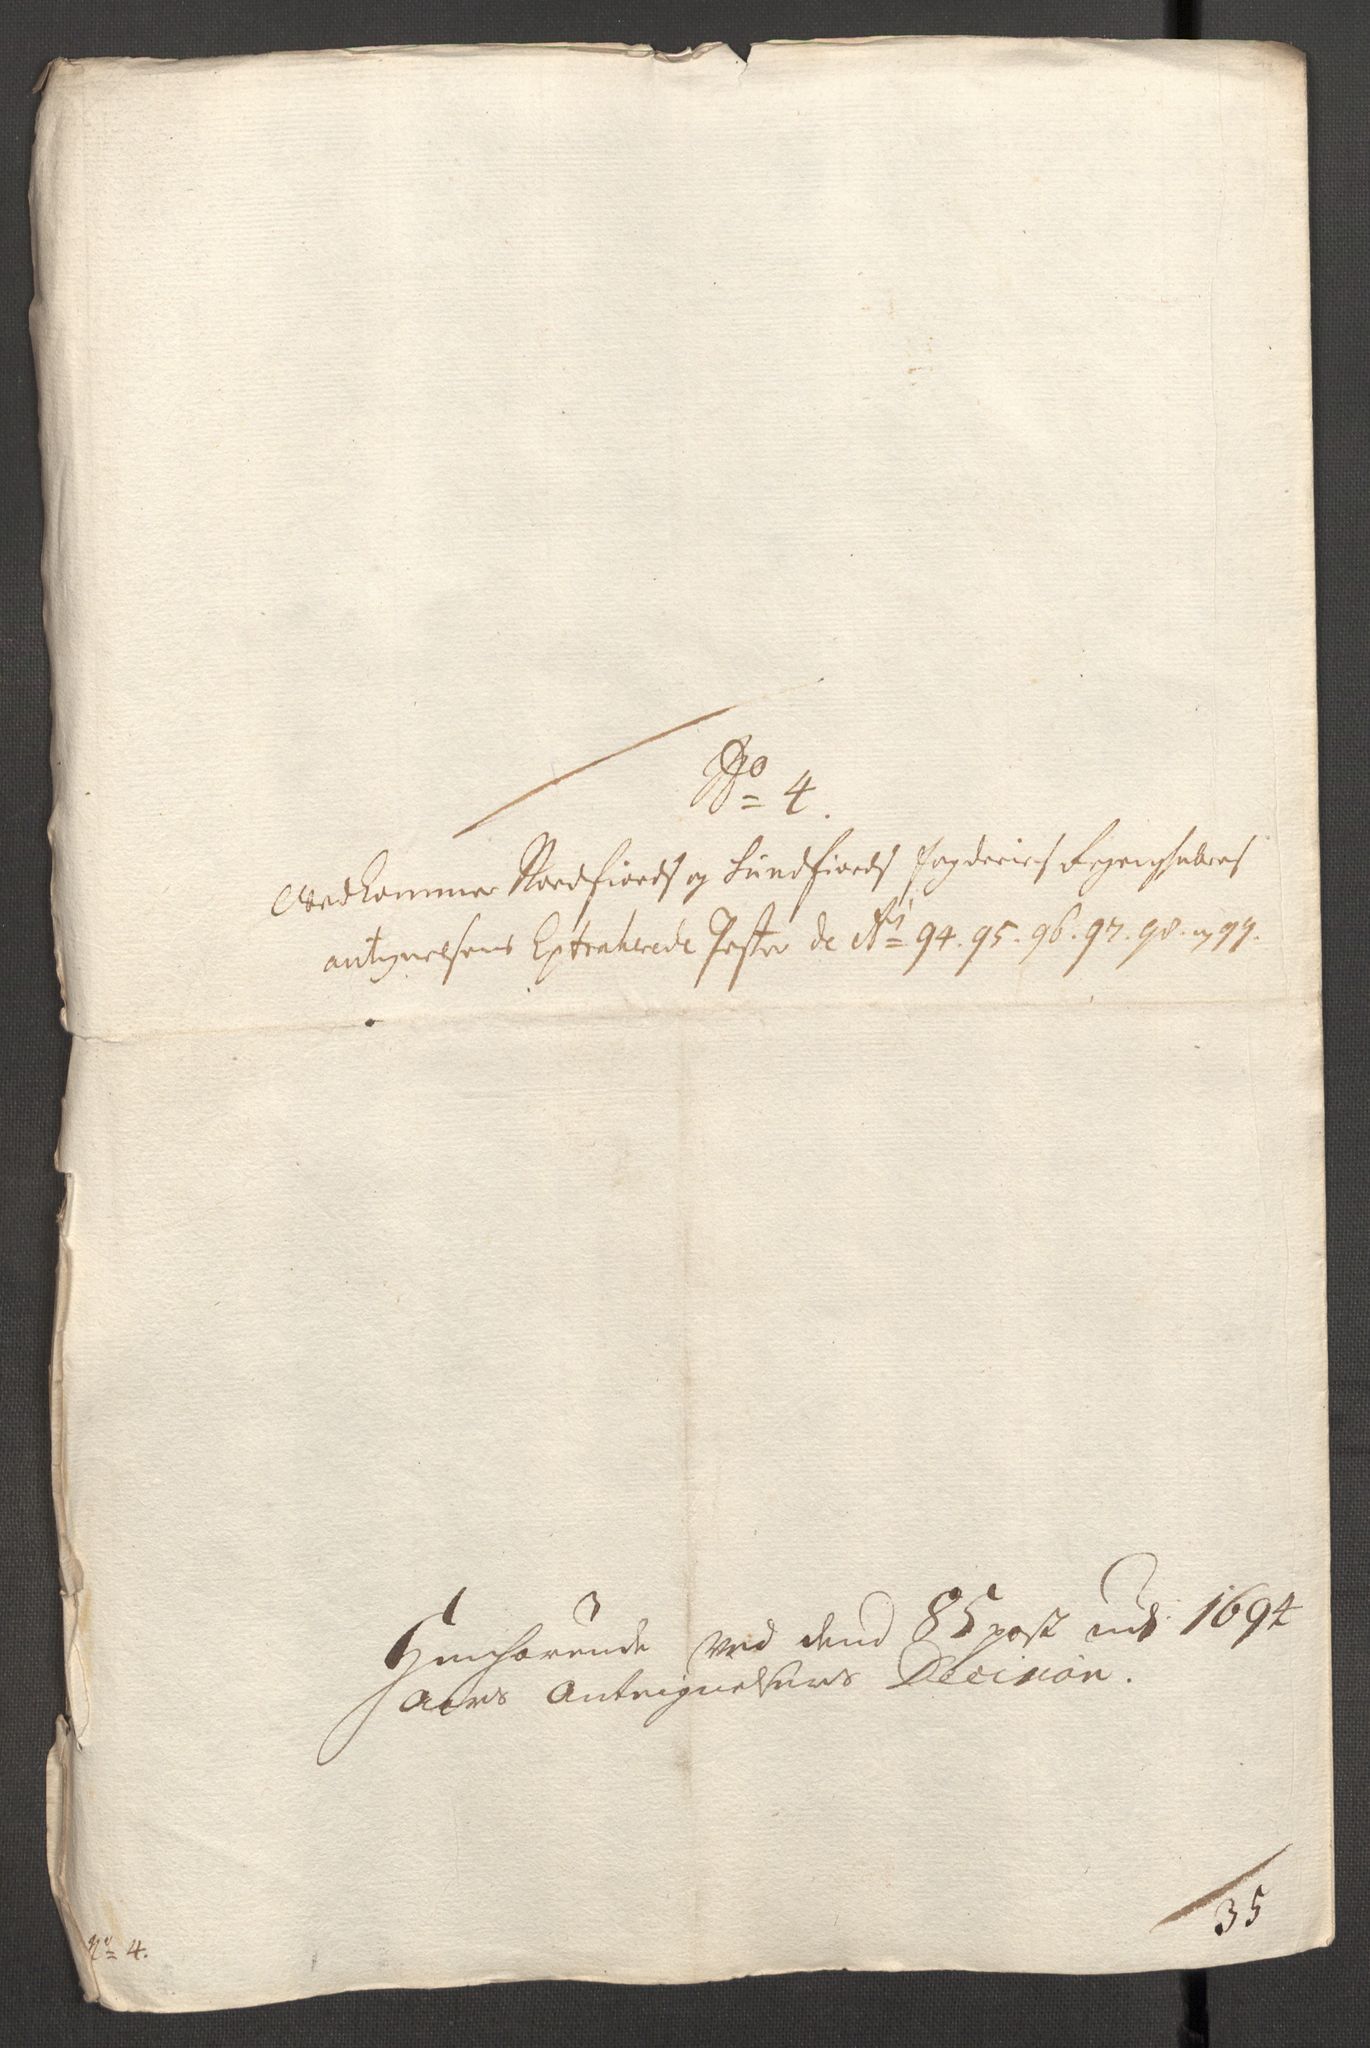 No 4.
Vedkommer Nordfiords og Sundfiords fogderies Regenschabers
antegnelsers Extraherede Poster de Ao 94. 95. 96. 97. 98. og 99.
Henhørende ved dend 85 post udj 1694
aars Anteignelsers Decision.
35
No 4.